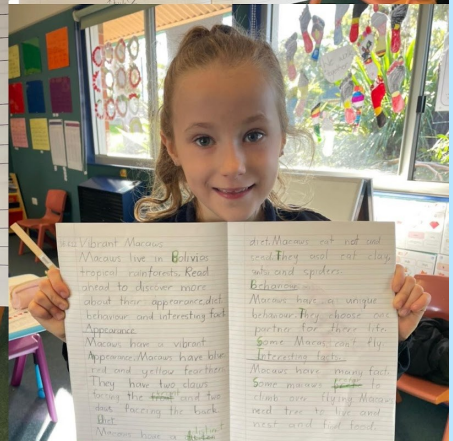 Vibrant Macaws
Macaws live in Bolivias
tropical rainforests. Read
ahead to discover more
about their appearance, diet,
behaviour and interesting fact
Appearance
Macaws have a vibrant
Appearance. Macaws have blue,
red and yellow feathers
They have two claws
facing the and two
the back.
Diet
Macaws have a
diet. Macaws eat nut and
seed. They also eat clay,
and spiders.
Behaviour
Macaws have a unique
behaviour. They choose one
partner for there life.
Some Macaws can't fly
Interesting facts
Macaws have many fact
Some macaws to
climb over flying. Macaws
need tree to live and
nest and find food.